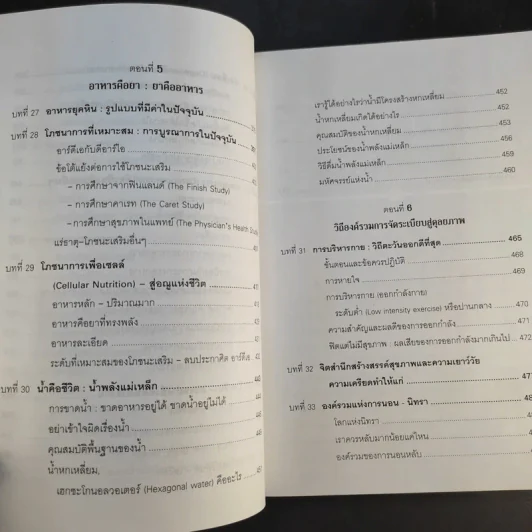 ตอนที่ 5
อาหารคือยา : ยาคืออาหาร
บทที่ 27 อาหารยุคหิน : รูปแบบที่มีค่าในปัจจุบัน
บทที่ 28 โภชนาการที่เหมาะสม : การบูรณาการในปัจจุบัน
อาร์ดีเอกับดีอาร์ไอ
ข้อโต้แย้งต่อการใช้โภชนะเสริม
– การศึกษาจากฟินแลนด์ (The Finish Study)
– การศึกษาคาเรท (The Caret Study)
– การศึกษาสุขภาพในแพทย์ (The Physician's Health Study
แร่ธาตุ-โภชนะเสริมอื่นๆ
บทที่ 29 โภชนาการเพื่อเซลล์
(Cellular Nutrition) - สู่อณูแห่งชีวิต
อาหารหลัก - ปริมาณมาก
อาหารคือยาที่ทรงพลัง
อาหารละเอียด
ระดับที่เหมาะสมของโภชนะเสริม - ลบประกาศิต อาร์ดีเอ
บทที่ 30 น้ำคือชีวิต : น้ำพลังแม่เหล็ก
การขาดน้ำ : ขาดอาหารอยู่ได้ ขาดน้ำอยู่ไม่ได้
อย่าเข้าใจผิดเรื่องน้ำ
คุณสมบัติพื้นฐานของน้ำ
น้ำหกเหลี่ยม,
เฮกซะโกนอลวอเตอร์ (Hexagonal water) คืออะไร
เรารู้ได้อย่างไรว่าน้ำมีโครงสร้างหกเหลี่ยม 452
น้ำหกเหลี่ยมเกิดได้อย่างไร 452
คุณสมบัติของน้ำหกเหลี่ยม 453
ประโยชน์ของน้ำพลังแม่เหล็ก 456
วิธีดื่มน้ำพลังแม่เหล็ก 459
มหัศจรรย์แห่งน้ำ 460
ตอนที่ 6
วิถีองค์รวมการจัดระเบียบสู่ดุลยภาพ
บทที่ 31 การบริหารกาย : วิถีตะวันออกดีที่สุด 465
ขั้นตอนและข้อควรปฏิบัติ 468
การหายใจ 468
การบริหารกาย (ออกกำลังกาย) 469
ระดับต่ำ (Low intensity exercise) หรือปานกลาง 470
ความสำคัญและผลดีของการออกกำลัง 471
ฟิตแต่ไม่มีสุขภาพ : ผลเสียของการออกกำลังมากเกินไป 472
บทที่ 32 จิตสำนึกสร้างสรรค์สุขภาพและความเยาว์วัย
ความเครียดทำให้แก่
บทที่ 33 องค์รวมแห่งการนอน - นิทรา
โลกแห่งนิทรา
เราควรหลับมากน้อยแค่ไหน
องค์รวมของการนอนหลับ